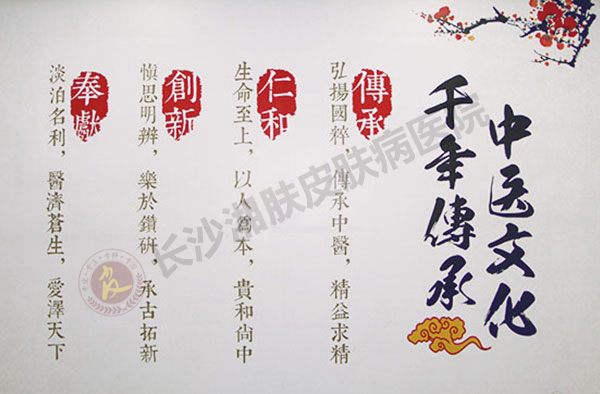 中医文化
千年傳承
傳承
弘揚國粹，傳承中醫，精益求精
仁和
生命至上，以人為本，貴和尚中
創新
慎思明辨，樂於鑽研，承古拓新
奉獻
淡泊名利，醫濟蒼生，愛澤天下
长沙湖肤皮肤病医院
皮